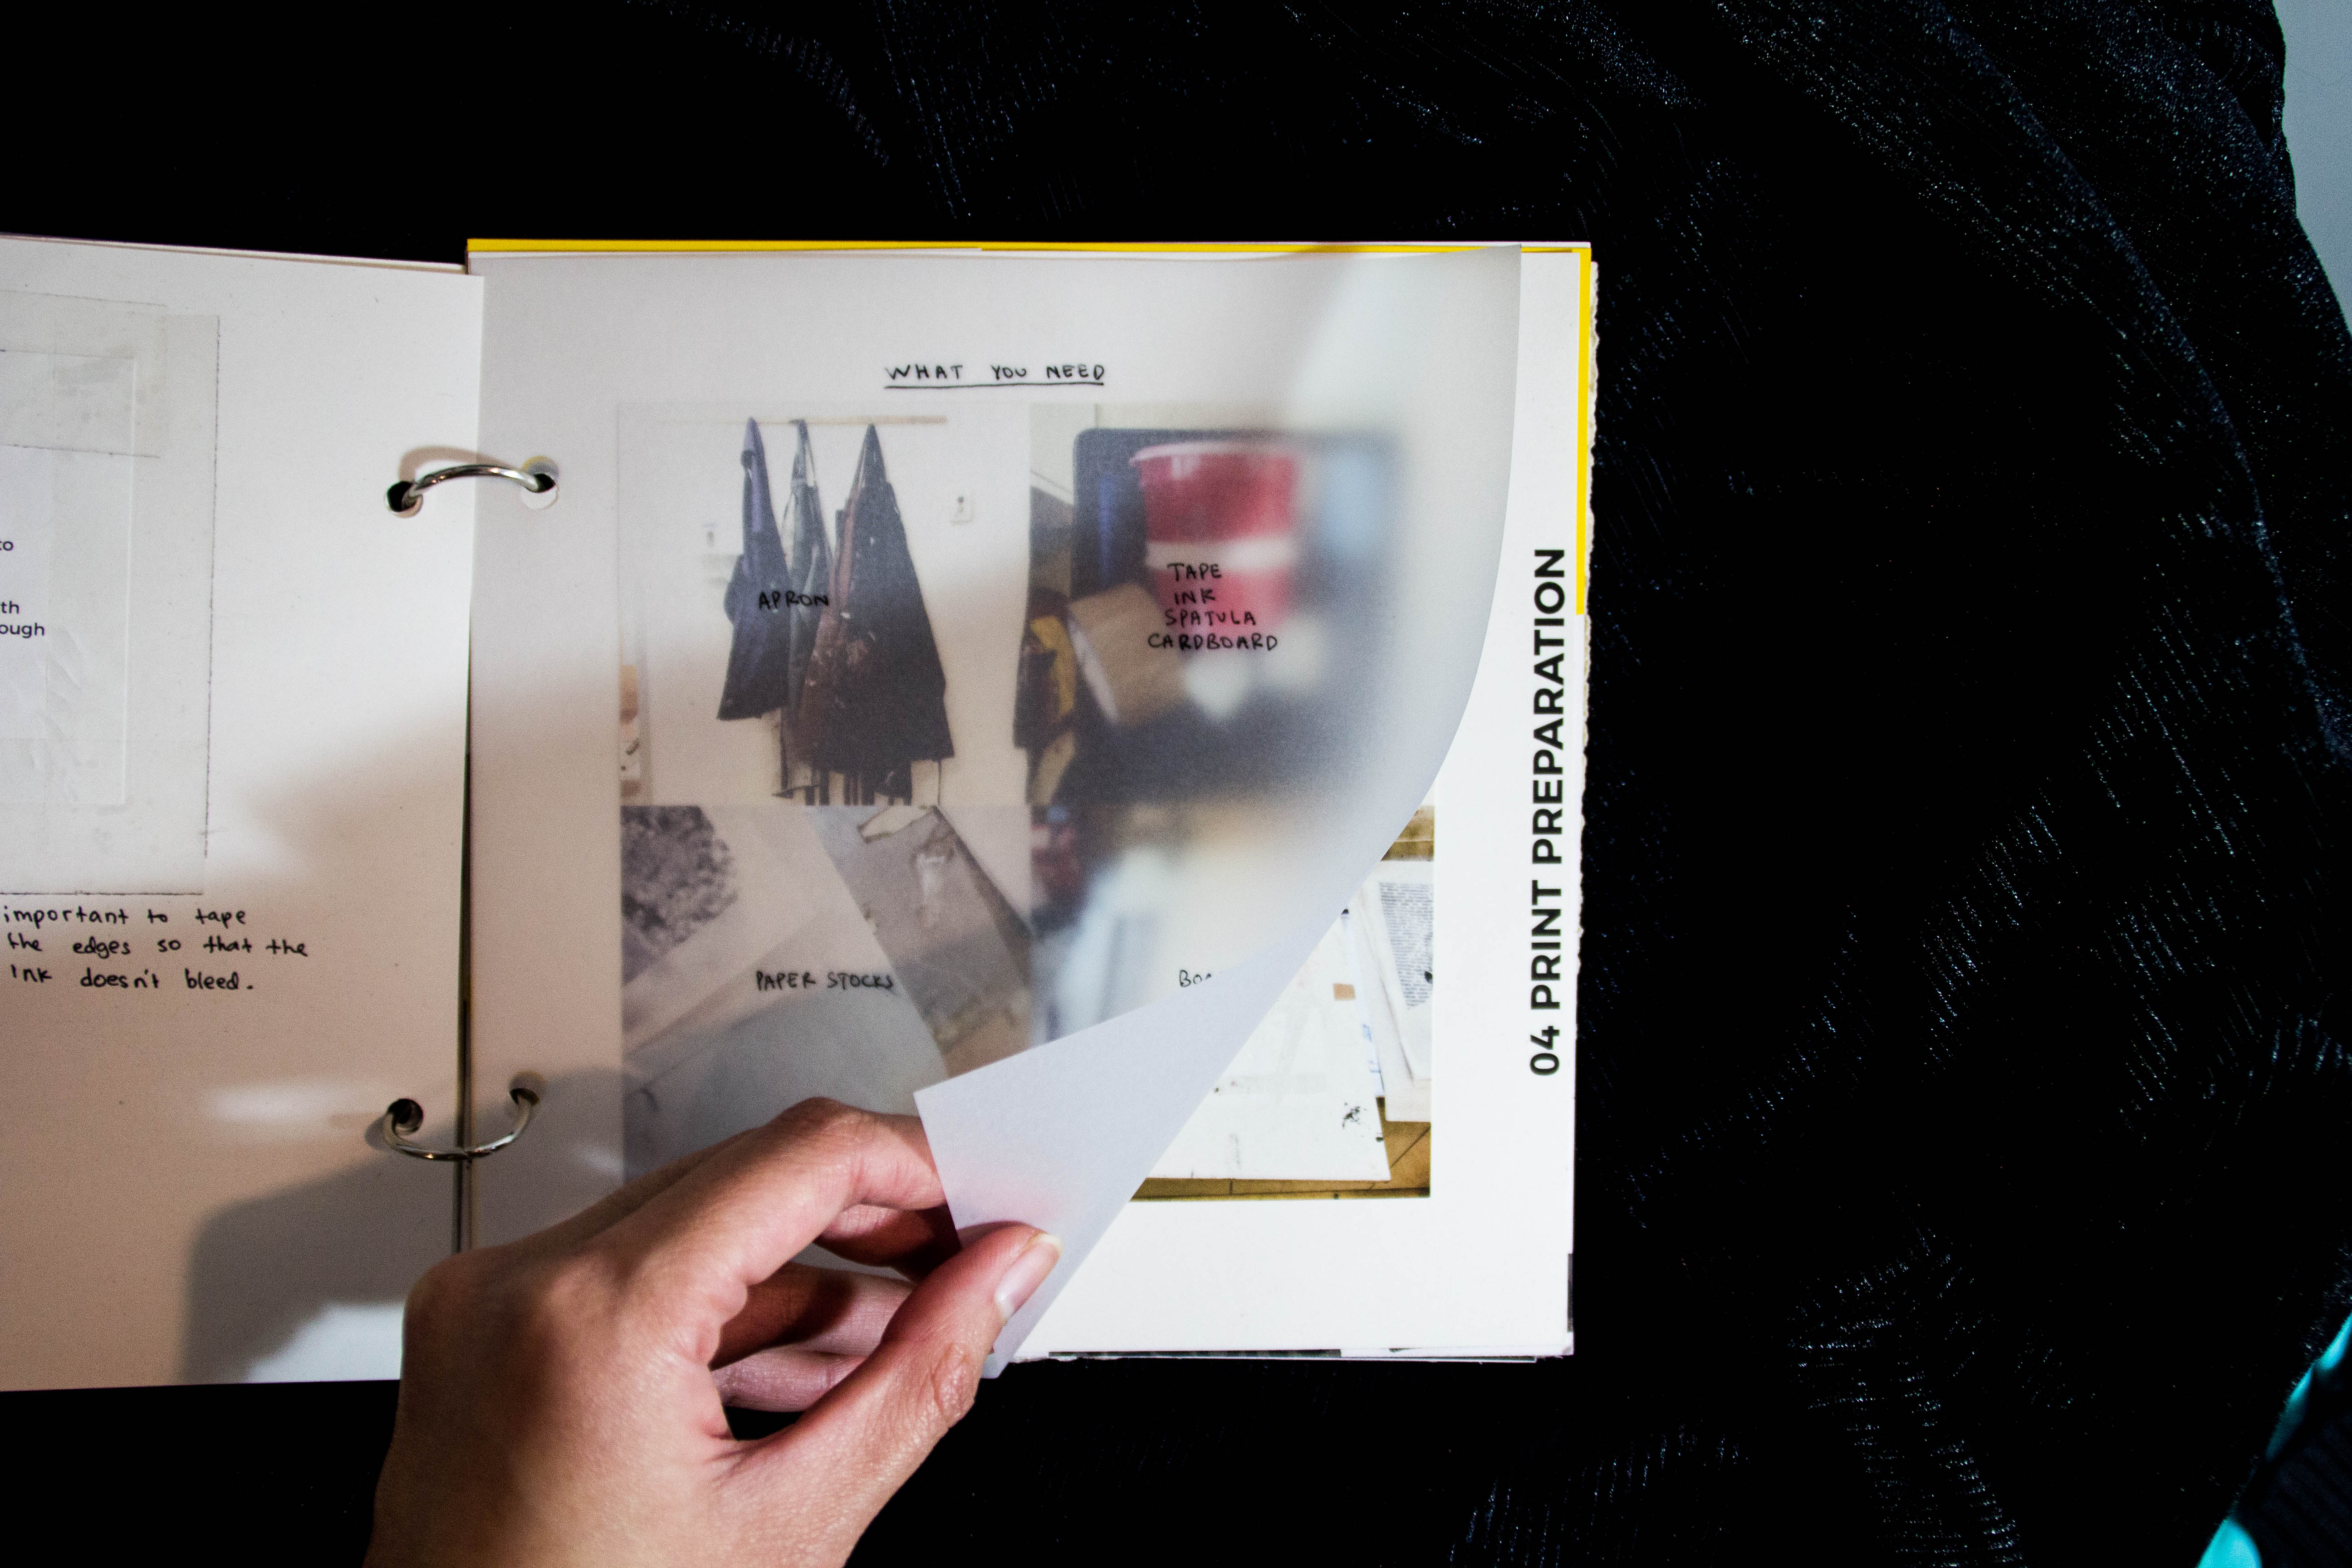 to
th
ough
important to tape
the edges so that the
ink doesn't bleed.
WHAT YOU NEED
APRON
TAPE
INK
SPATULA
CARDBOARD
PAPER STOCKS
04 PRINT PREPARATION